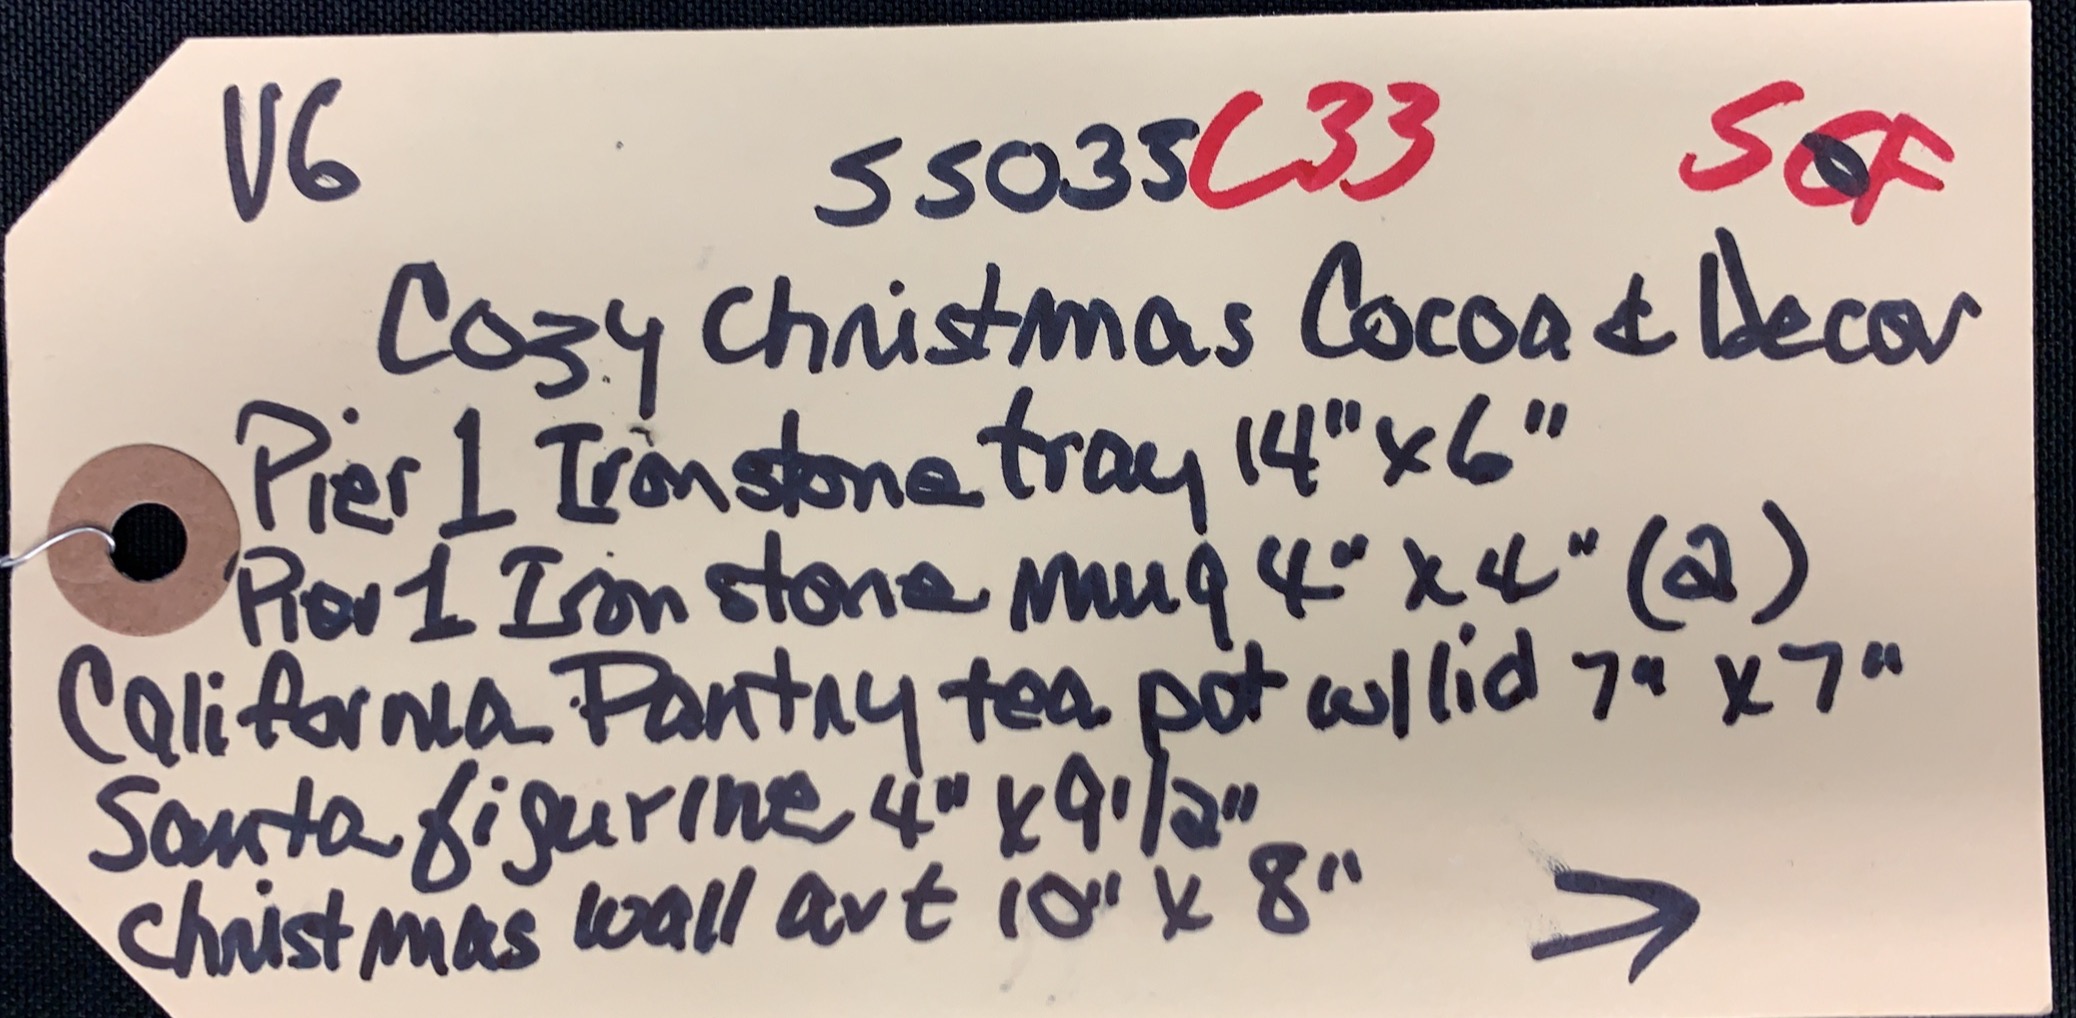 V6 55035 C33
Cozy Christmas Cocoa & Decor
Pier 1 Ironstone tray 14" x 6"
Pier 1 Iron stone mug 4" x 4" (2)
California Pantry tea pot w/lid 7" x 7"
Santa figurine 4" x 9 1/2"
Christmas wall art 10" x 8"